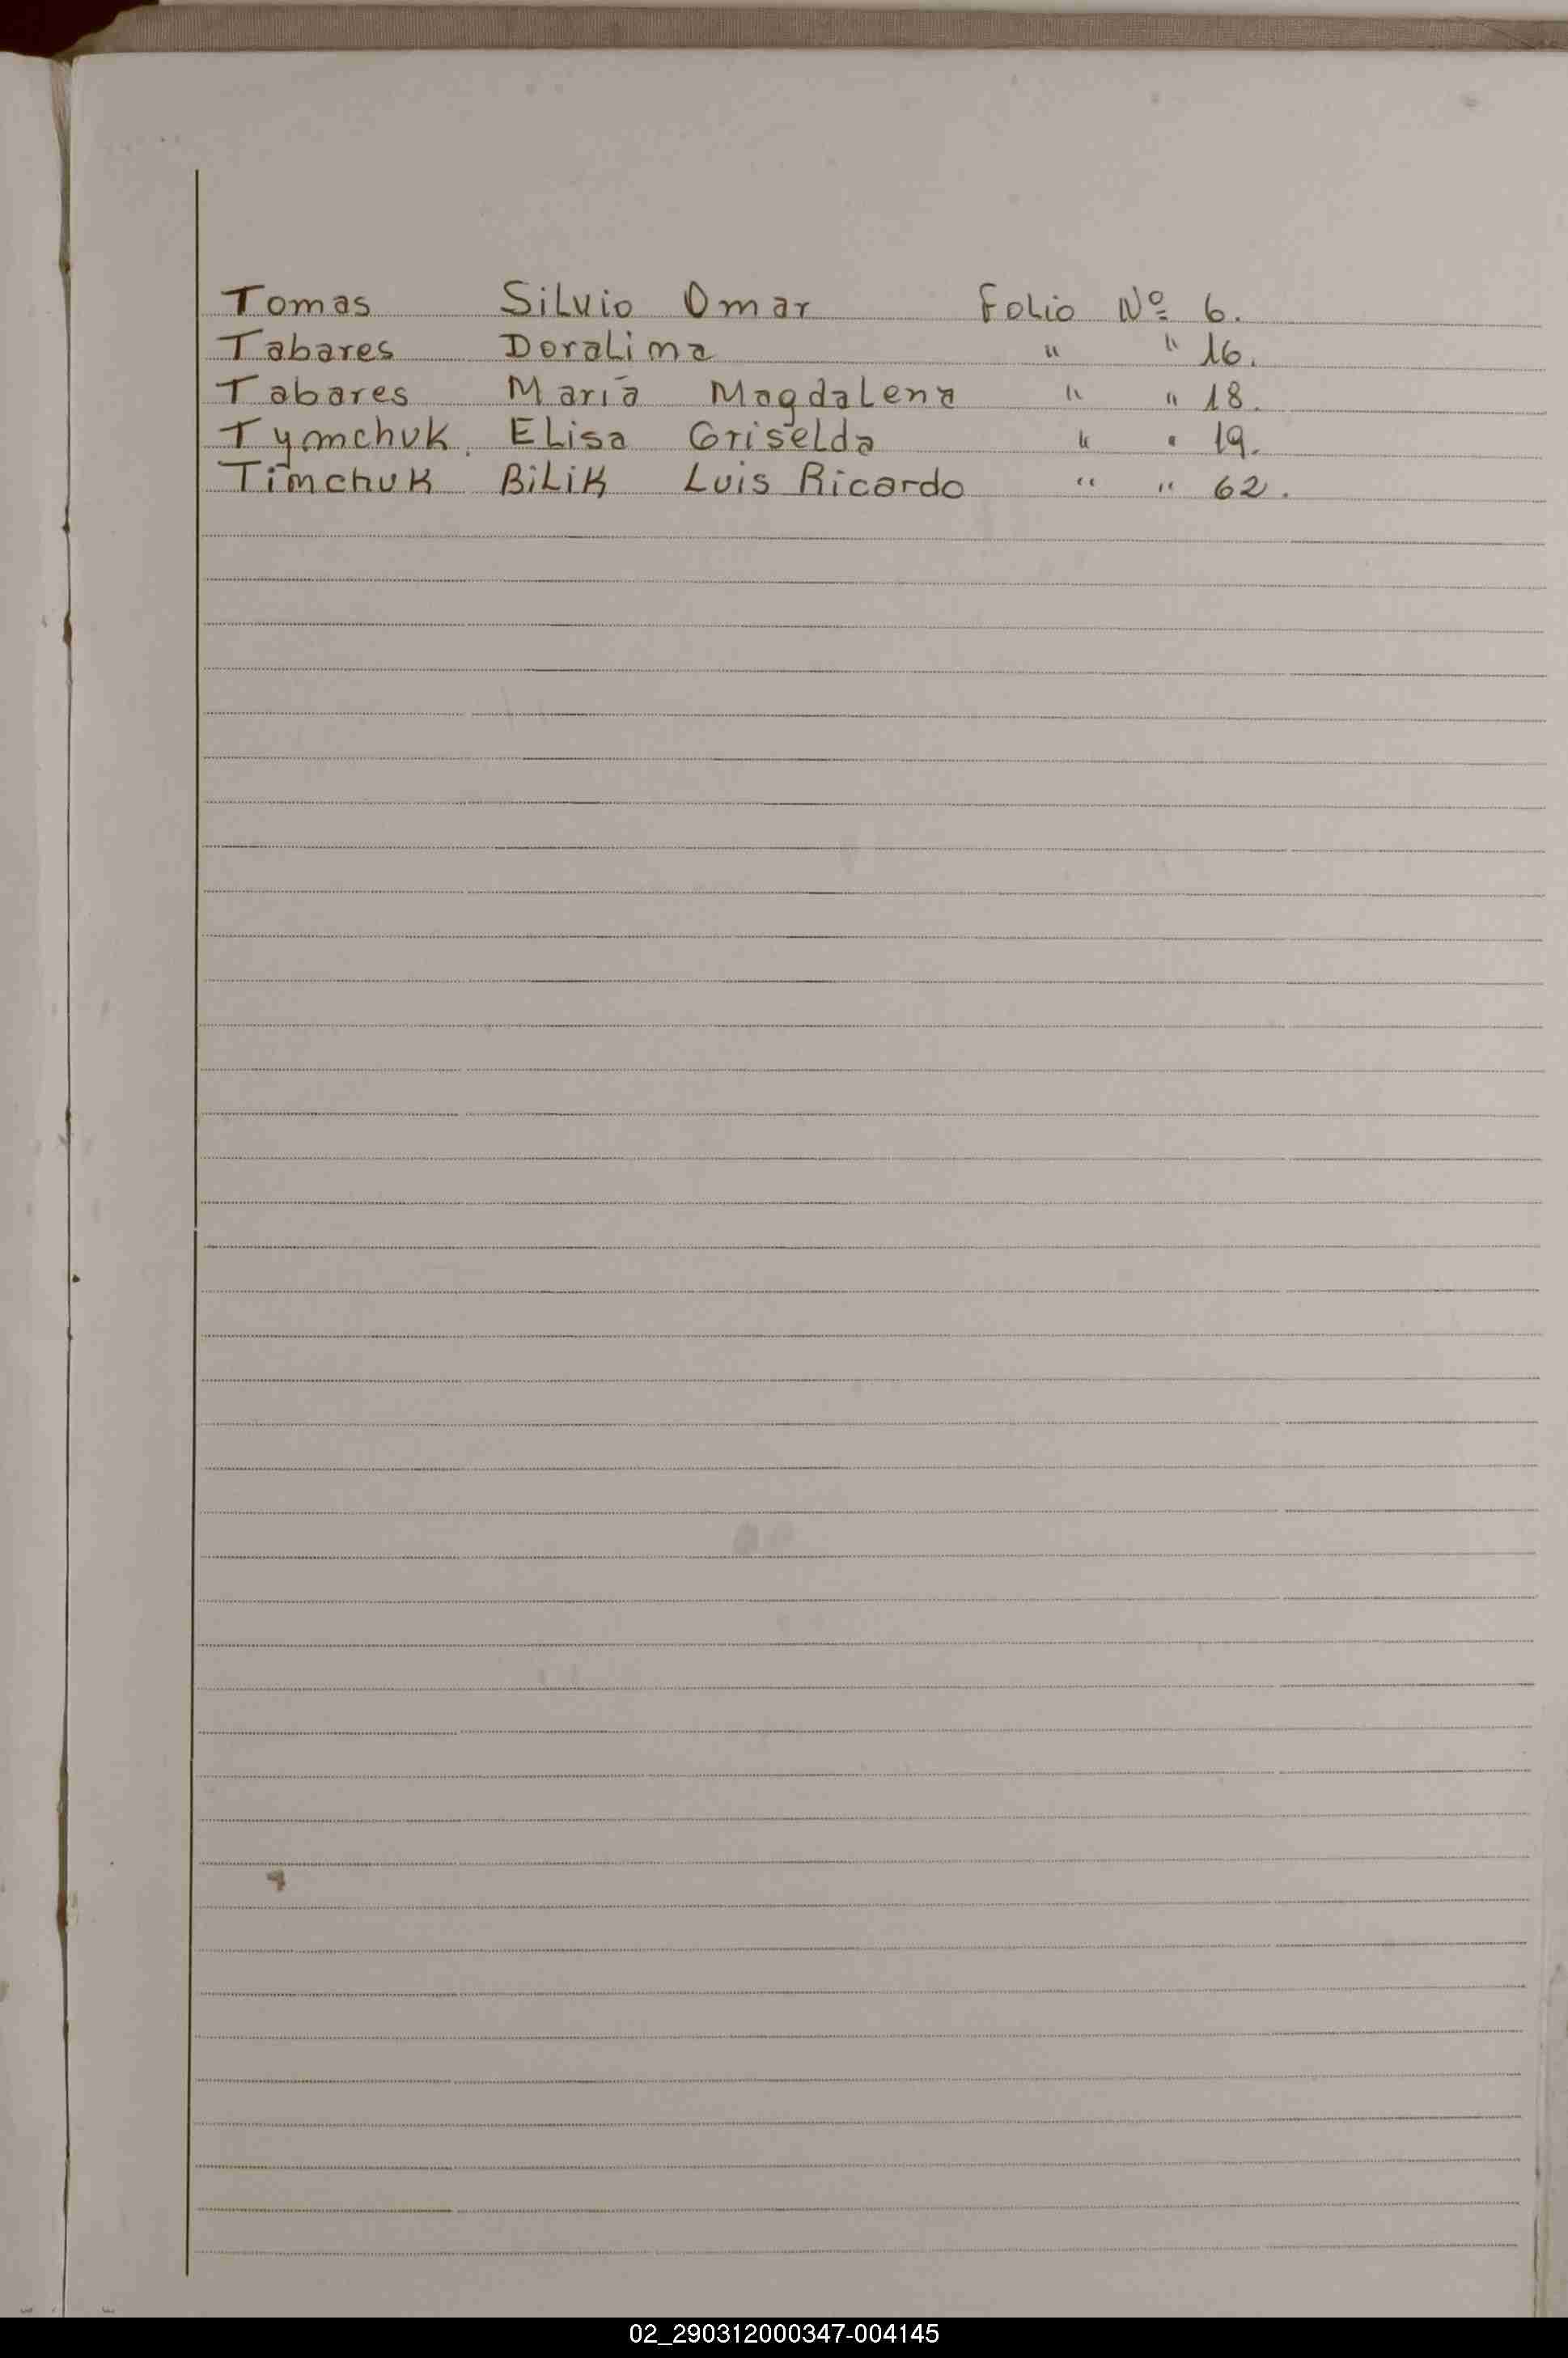 Tomas Silvio Omar Folio Nº 6.
Tabares Doralima " " 16.
Tabares María Magdalena " " 18.
Tymchuk. Elisa Griselda " " 19.
Timchuk Bilik Luis Ricardo " " 62.
02_290312000347-004145